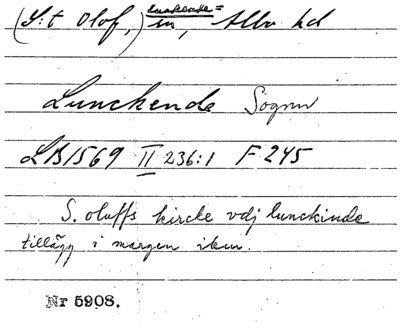 (S:t Olof,) lunkende=in, Albo hd
Lunckende Sognn
LB 1569 II 236:1 F 245
S. oluffs kircke vdj lunckinde
tillägg i margen
Nr 5908.